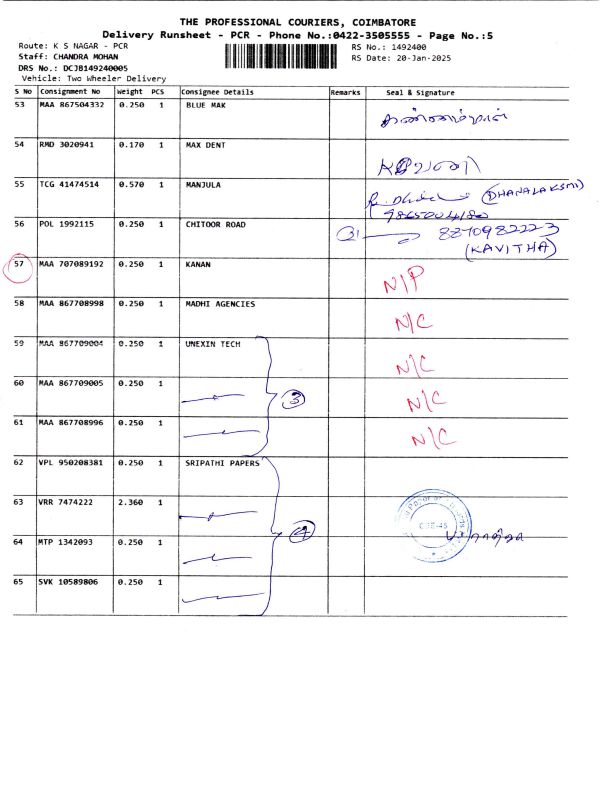 THE PROFESSIONAL COURIERS, COIMBATORE
Delivery Runsheet - PCR - Phone No.:0422-3505555 - Page No.:5
Route: K S NAGAR - PCR RS No.: 1492400
Staff: CHANDRA MOHAN RS Date: 20-Jan-2025
DRS No.: DCJB149240005
Vehicle: Two Wheeler Delivery
S No Consignment No Weight PCS Consignee Details Remarks Seal & Signature
53 MAA 867504332 0.250 1 BLUE MAK
54 RMD 3020941 0.170 1 MAX DENT
55 TCG 41474514 0.570 1 MANJULA (DHANALAKSMI)
56 POL 1992115 0.250 1 CHITOOR ROAD 8870982223
(KAVITHA)
57 MAA 707089192 0.250 1 KANAN N/P
58 MAA 867708998 0.250 1 MADHI AGENCIES N/C
59 MAA 867709004 0.250 1 UNEXIN TECH N/C
60 MAA 867709005 0.250 1 3 N/C
61 MAA 867708996 0.250 1 N/C
62 VPL 950208381 0.250 1 SRIPATHI PAPERS
63 VRR 7474222 2.360 1
64 MTP 1342093 0.250 1 4
65 SVK 10589806 0.250 1